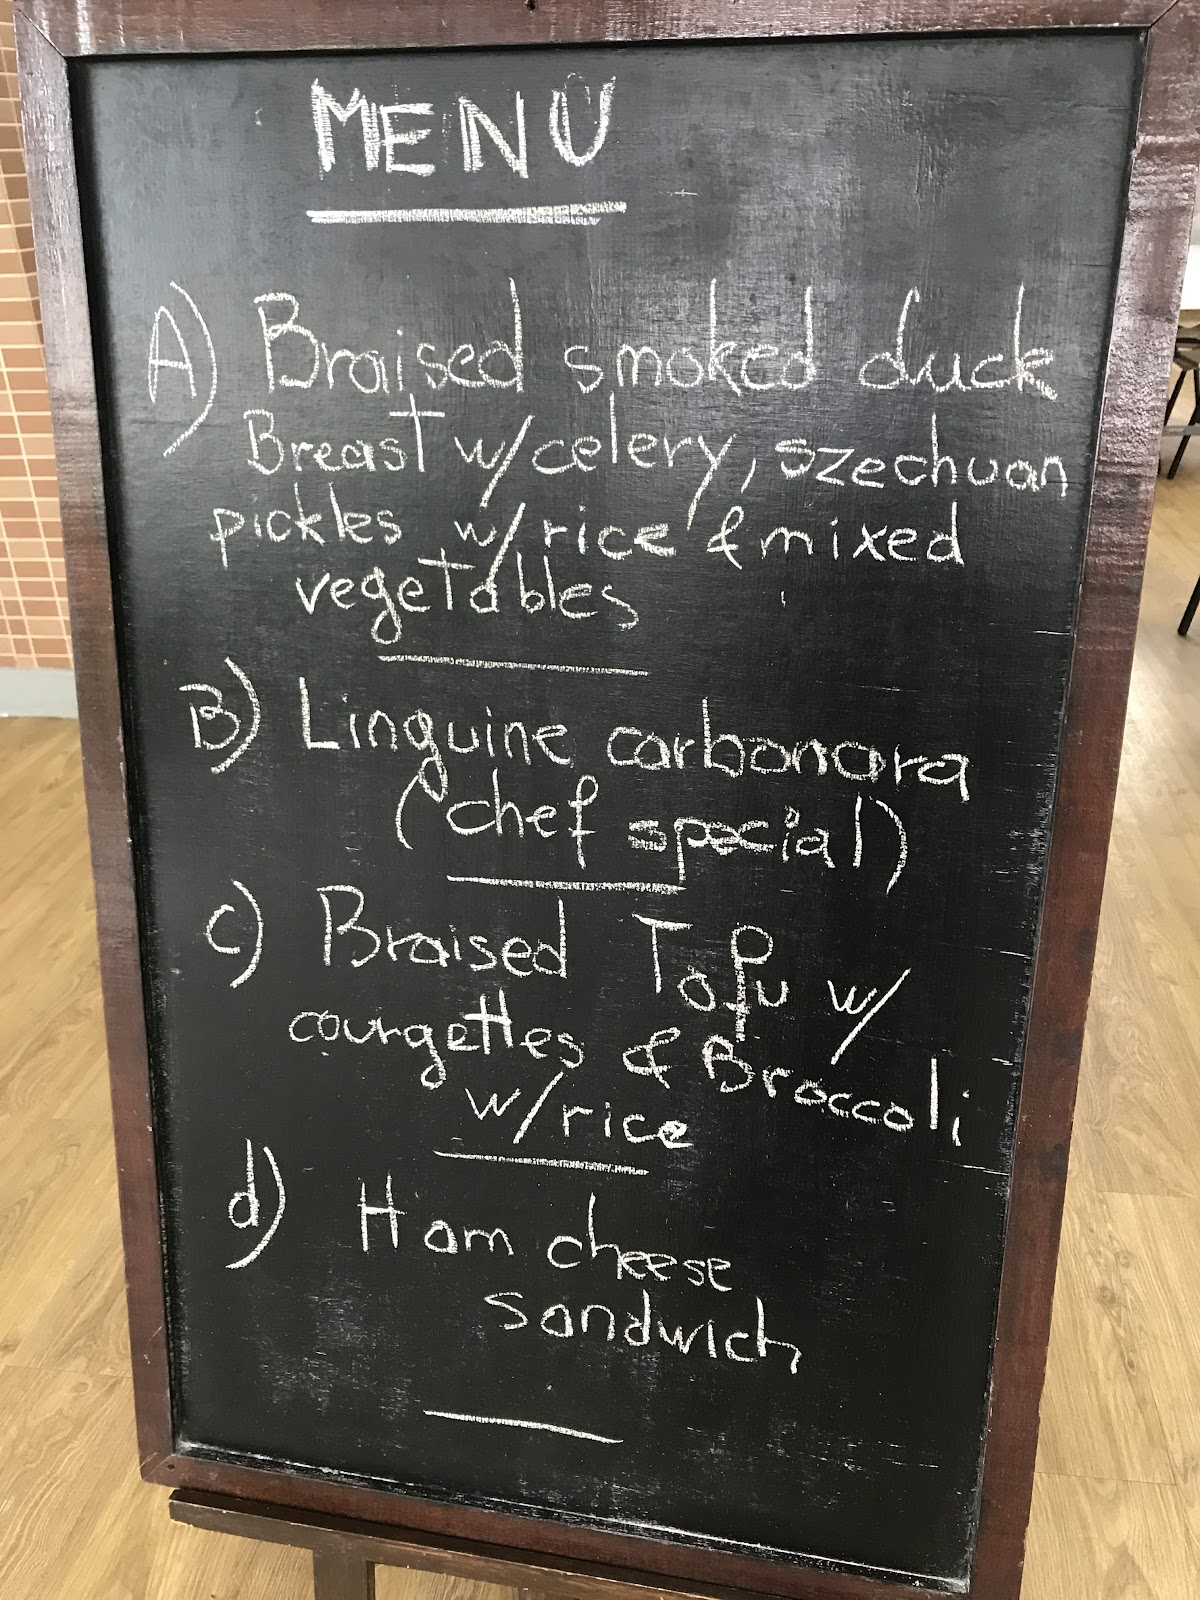 MENU
A) Braised smoked duck
Breast w/celery, szechuan
pickles w/rice & mixed
vegetables
B) Linguine carbonara
(chef special)
C) Braised Tofu w/
courgettes & Broccoli
w/rice
d) Ham cheese
sandwich